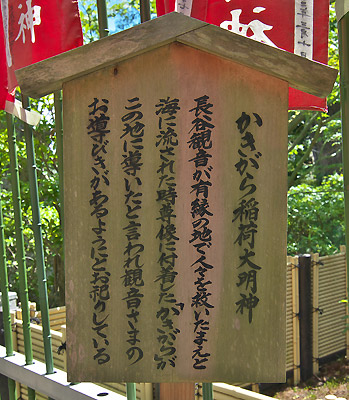 かきがら稲荷大明神
長谷観音が有縁の地で人々を救いたまえと
海に流された時尊像に付着した「かきがら」が
この地に導いたと言われ観音さまの
お導びきがあるようにとお祀りしている
神
神